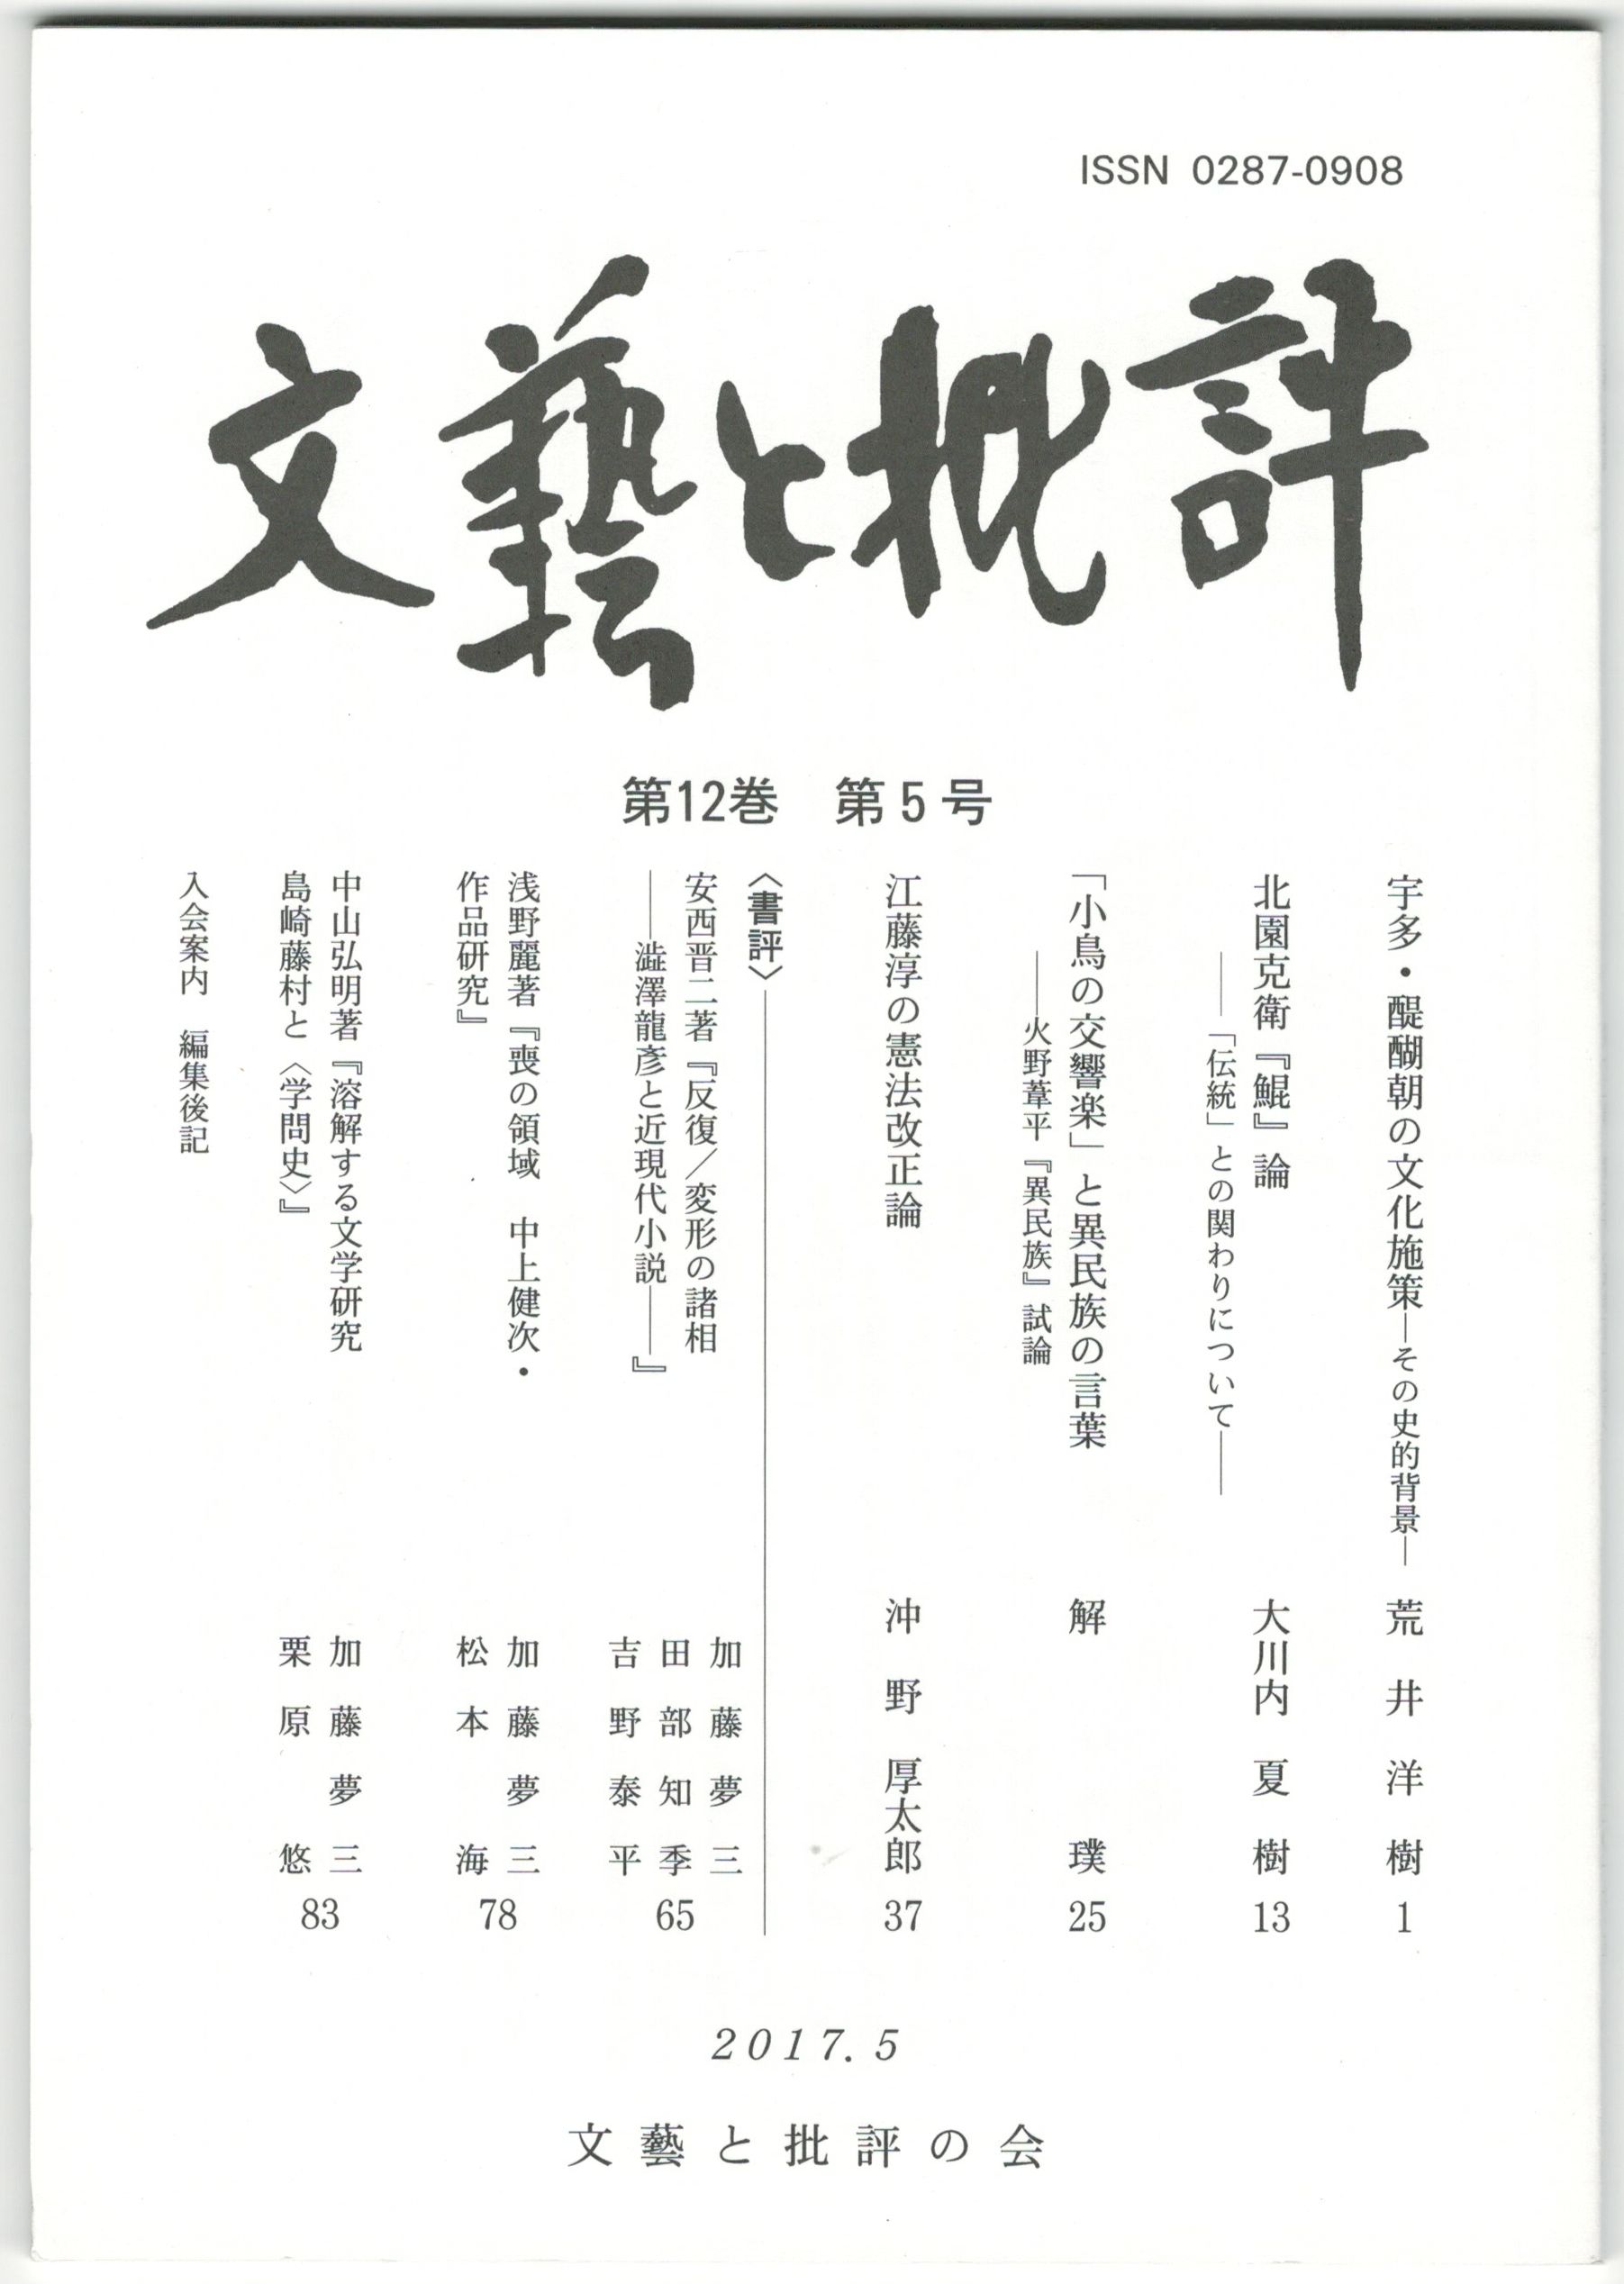 ISSN 0287-0908
文藝と批評
第12巻　第5号
宇多・醍醐朝の文化施策―その史的背景―　荒井洋樹　1
北園克衛『鯤』論
――「伝統」との関わりについて――　大川内夏樹　13
「小鳥の交響楽」と異民族の言葉
――火野葦平『異民族』試論　解璞　25
江藤淳の憲法改正論　沖野厚太郎　37
〈書評〉
安西晋二著『反復／変形の諸相
――澁澤龍彥と近現代小説――』
加藤夢三
田部知季
吉野泰平
65
浅野麗著『喪の領域　中上健次・
作品研究』
加藤夢三
松本海
78
中山弘明著『溶解する文学研究
島崎藤村と〈学問史〉』
加藤夢三
栗原悠
83
入会案内　編集後記
2017.5
文藝と批評の会